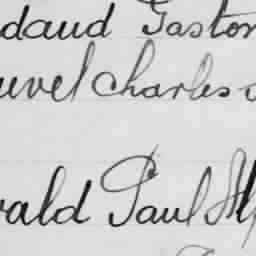 daud Gaston
uvel Charles
vald Paul